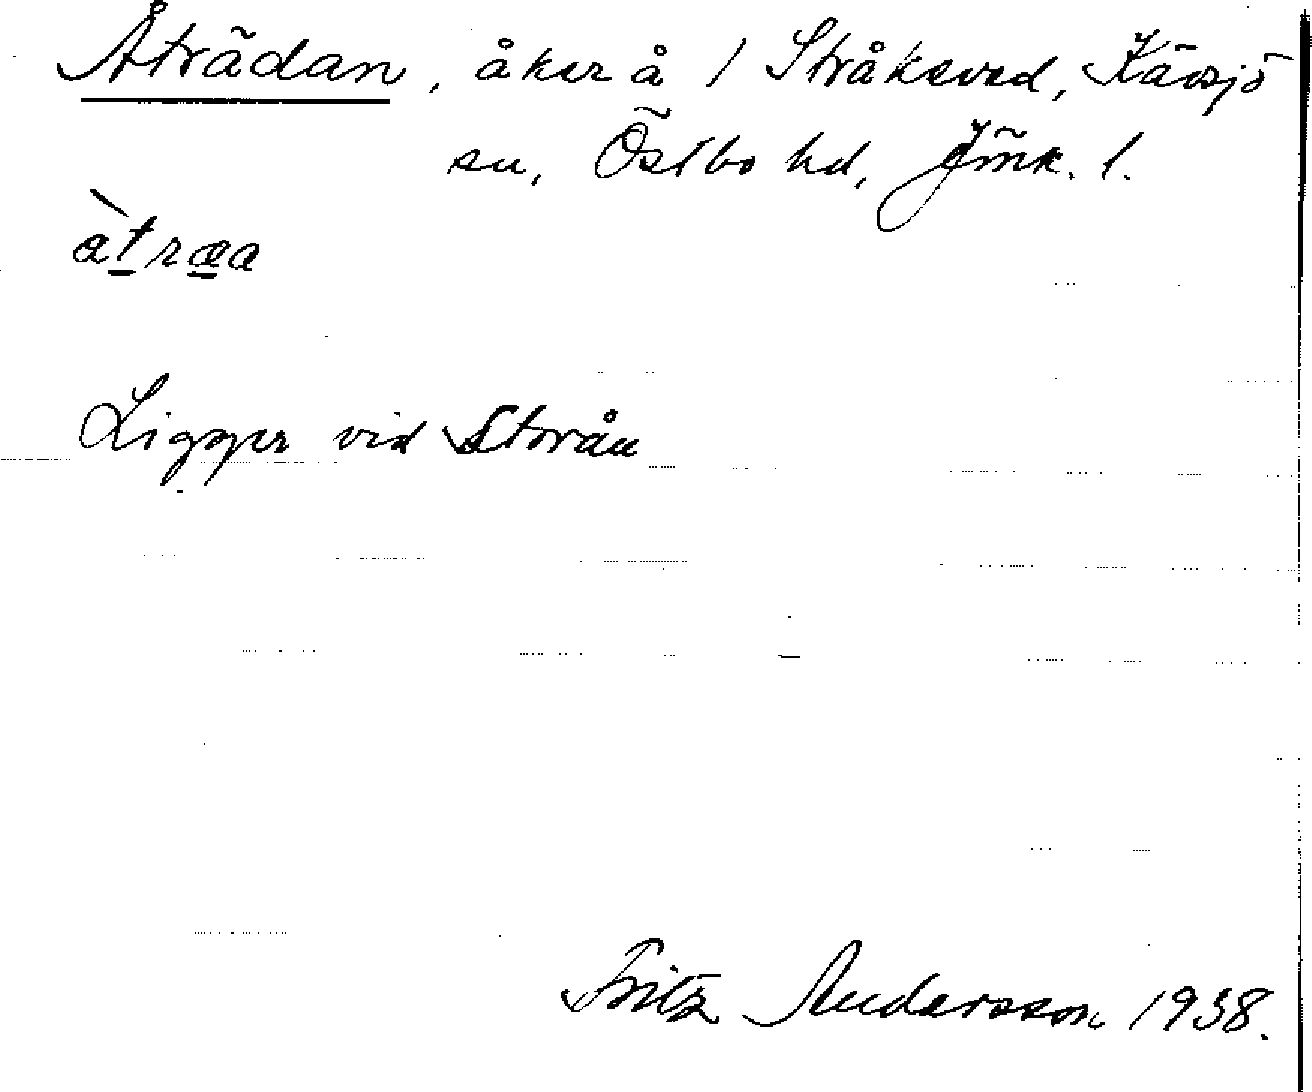 Åträdan, åker å 1 Stråkeved, Kävsjö
sn, Östbo hd, Jmk. l.
àtræa
Ligger vid Storån
Fritz Andersson 1938.